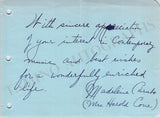 With sincere appreciation
of your interest in Contemporary
music and best wishes
for a wonderfully enriched
life.
Madeleine
(Mrs Harold Cone)